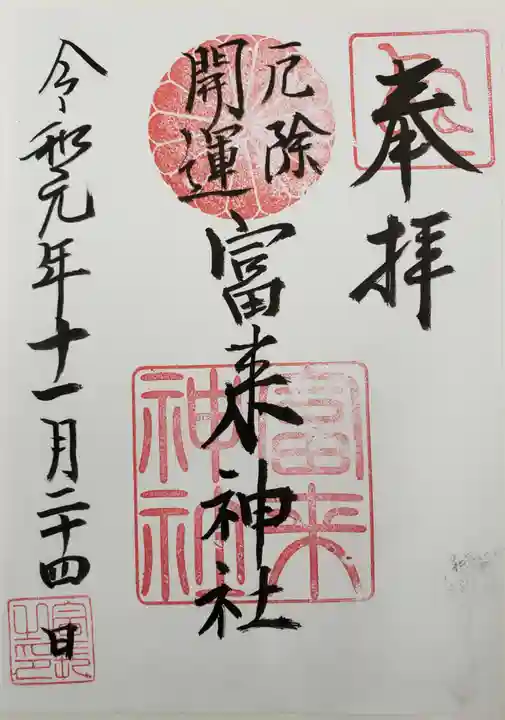 奉拝
厄除
開運
富来神社
富来
神社
令和元年十一月二十四日
宮司之印